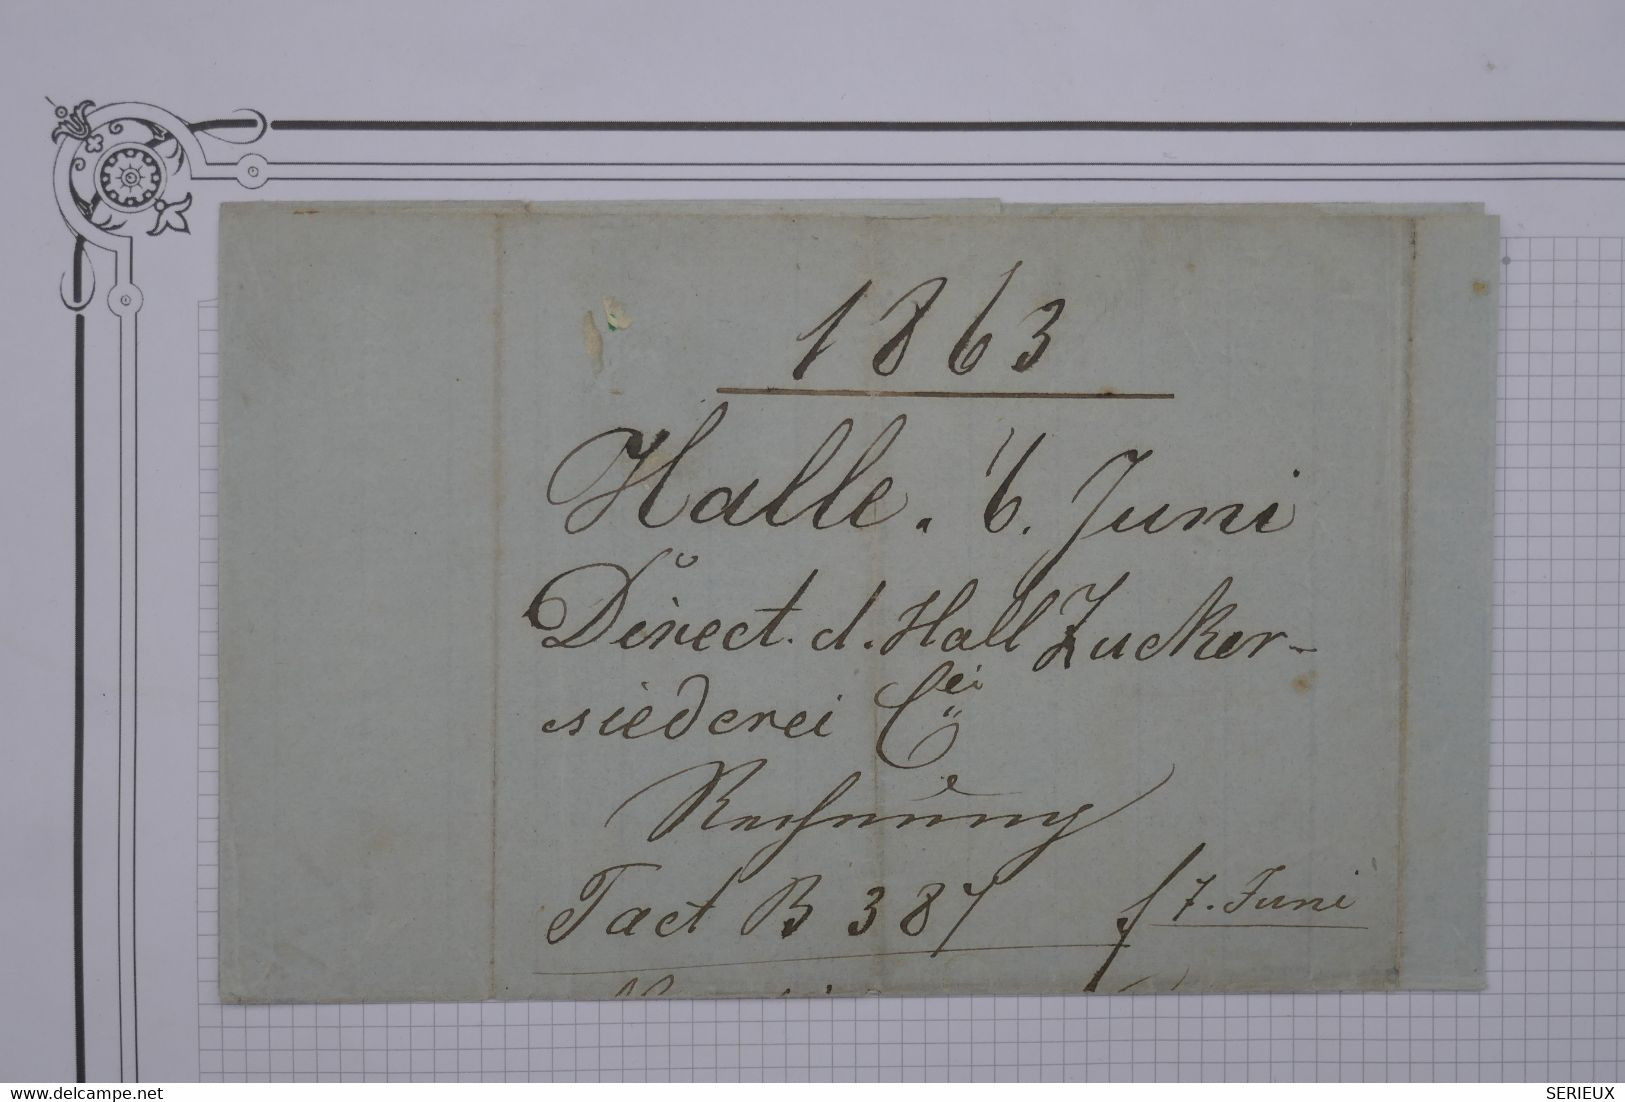 1863
Halle. 6. Juni
Direct. d. Hall Zucker-
siederei
Rechnung
Tact B 387 / 7. Juni
www.delcampe.net
SERIEUX